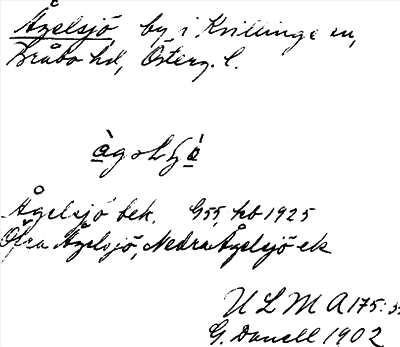 Ågelsjö by i Kvillinge sn,
Bråbo hd, Österg. l.
Ågelsjö bek. G55, kb 1925
Öfra Ågelsjö, Nedra Ågelsjö ek
ULMA 175:3
G. Danell 1902